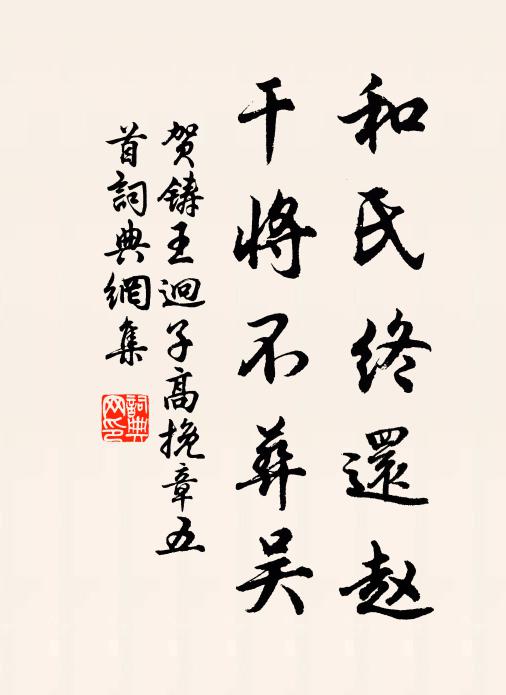 和氏终還赵
干将不葬吴
贺鑄王迥子高挽章五
首詞典網集
詞典
网印